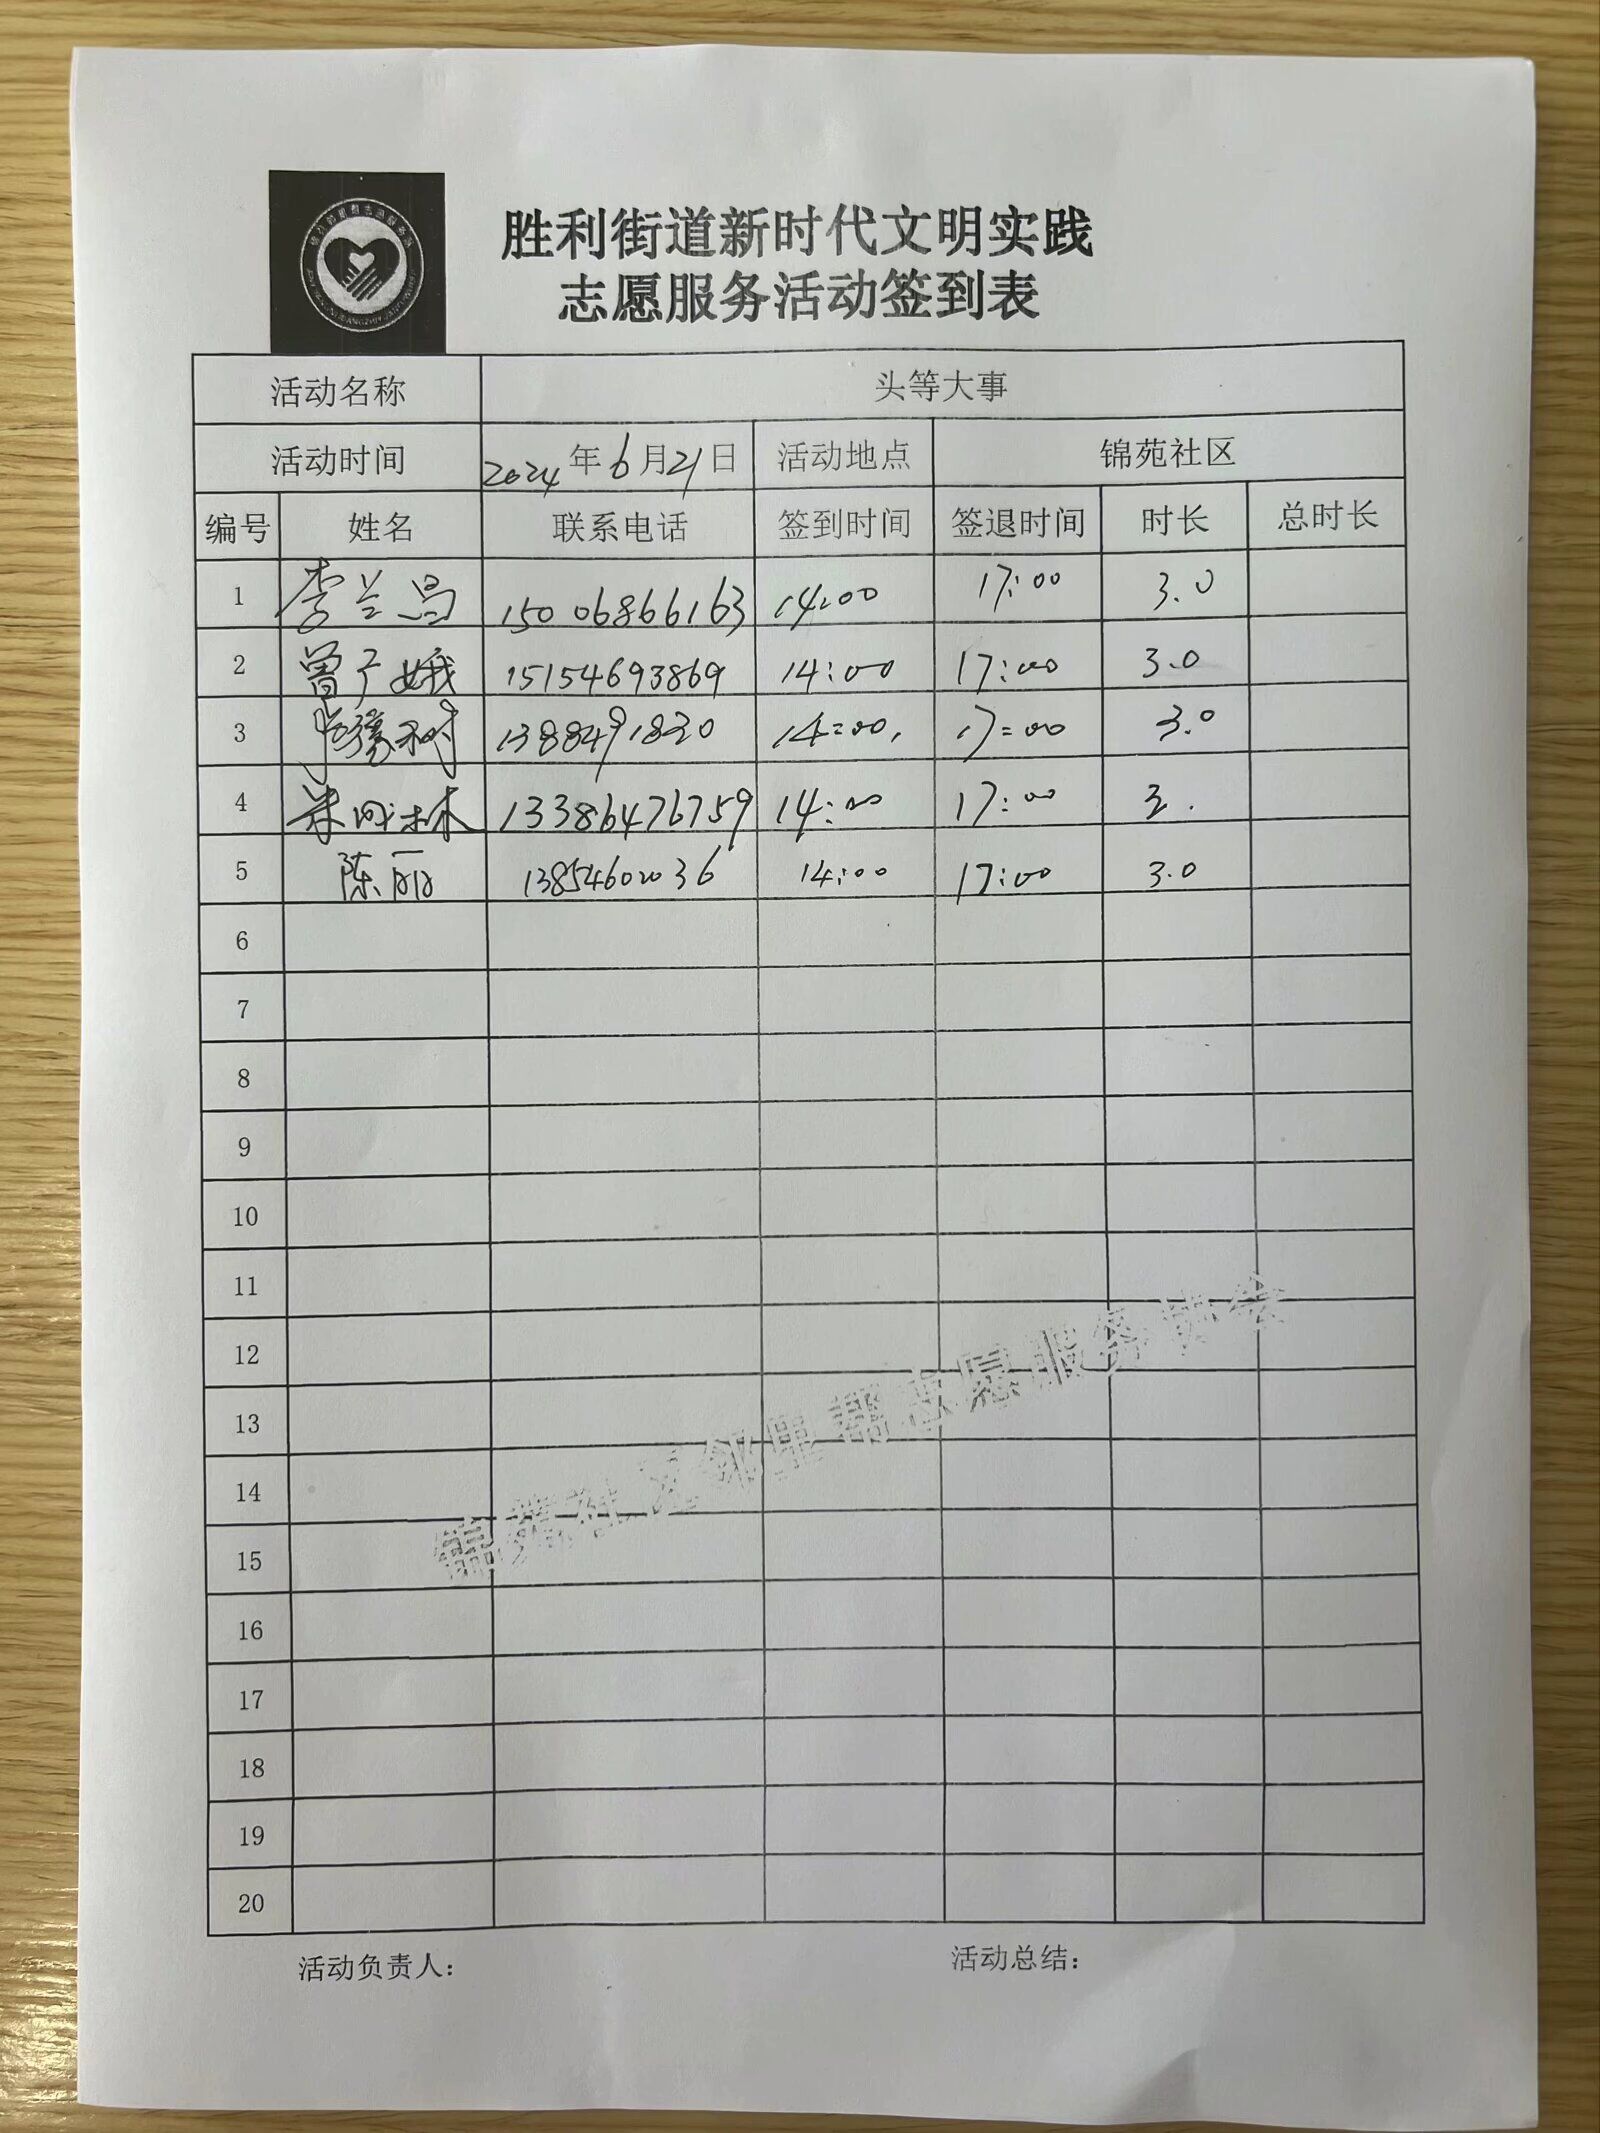 胜利街道新时代文明实践
志愿服务活动签到表
活动名称 头等大事
活动时间 2024年6月21日 活动地点 锦苑社区
编号 姓名 联系电话 签到时间 签退时间 时长 总时长
1 李兰昌 15006866163 14:00 17:00 3.0
2 曾广娥 15154693869 14:00 17:00 3.0
3 14:00 17:00 3.0
4 13386476759 14:00 17:00 3.
5 陈丽 13854602036 14:00 17:00 3.0
6
7
8
9
10
11
12
13
14
15
16
17
18
19
20
锦苑社区邻里帮志愿服务协会
活动负责人： 活动总结：